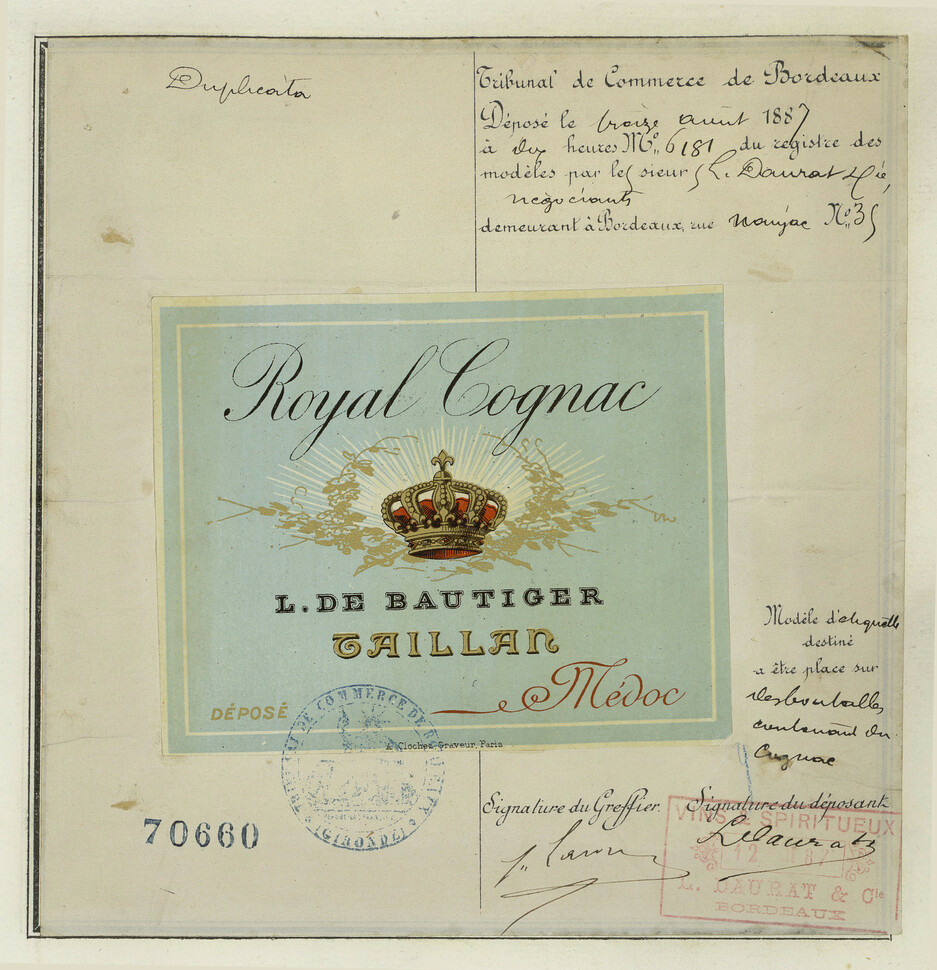 Duplicata
Tribunal de Commerce de Bordeaux
Déposé le treize août 1887
à dix heures No. 6181 du registre des
modèles par les sieurs L. Daurat & Cie,
négociants
demeurant à Bordeaux, rue Naujac No. 35
Royal Cognac
L. DE BAUTIGER
TAILLAN
Médoc
DÉPOSÉ
A. Clochez, Graveur, Paris
Modèle d'étiquette
destiné
à être place sur
des bouteilles
contenant du
Cognac
TRIBUNAL DE COMMERCE DE BORDEAUX
(GIRONDE)
70660
Signature du Greffier
Signature du déposant
L Daurat
VINS & SPIRITUEUX
12 87
L. DAURAT & Cie
BORDEAUX